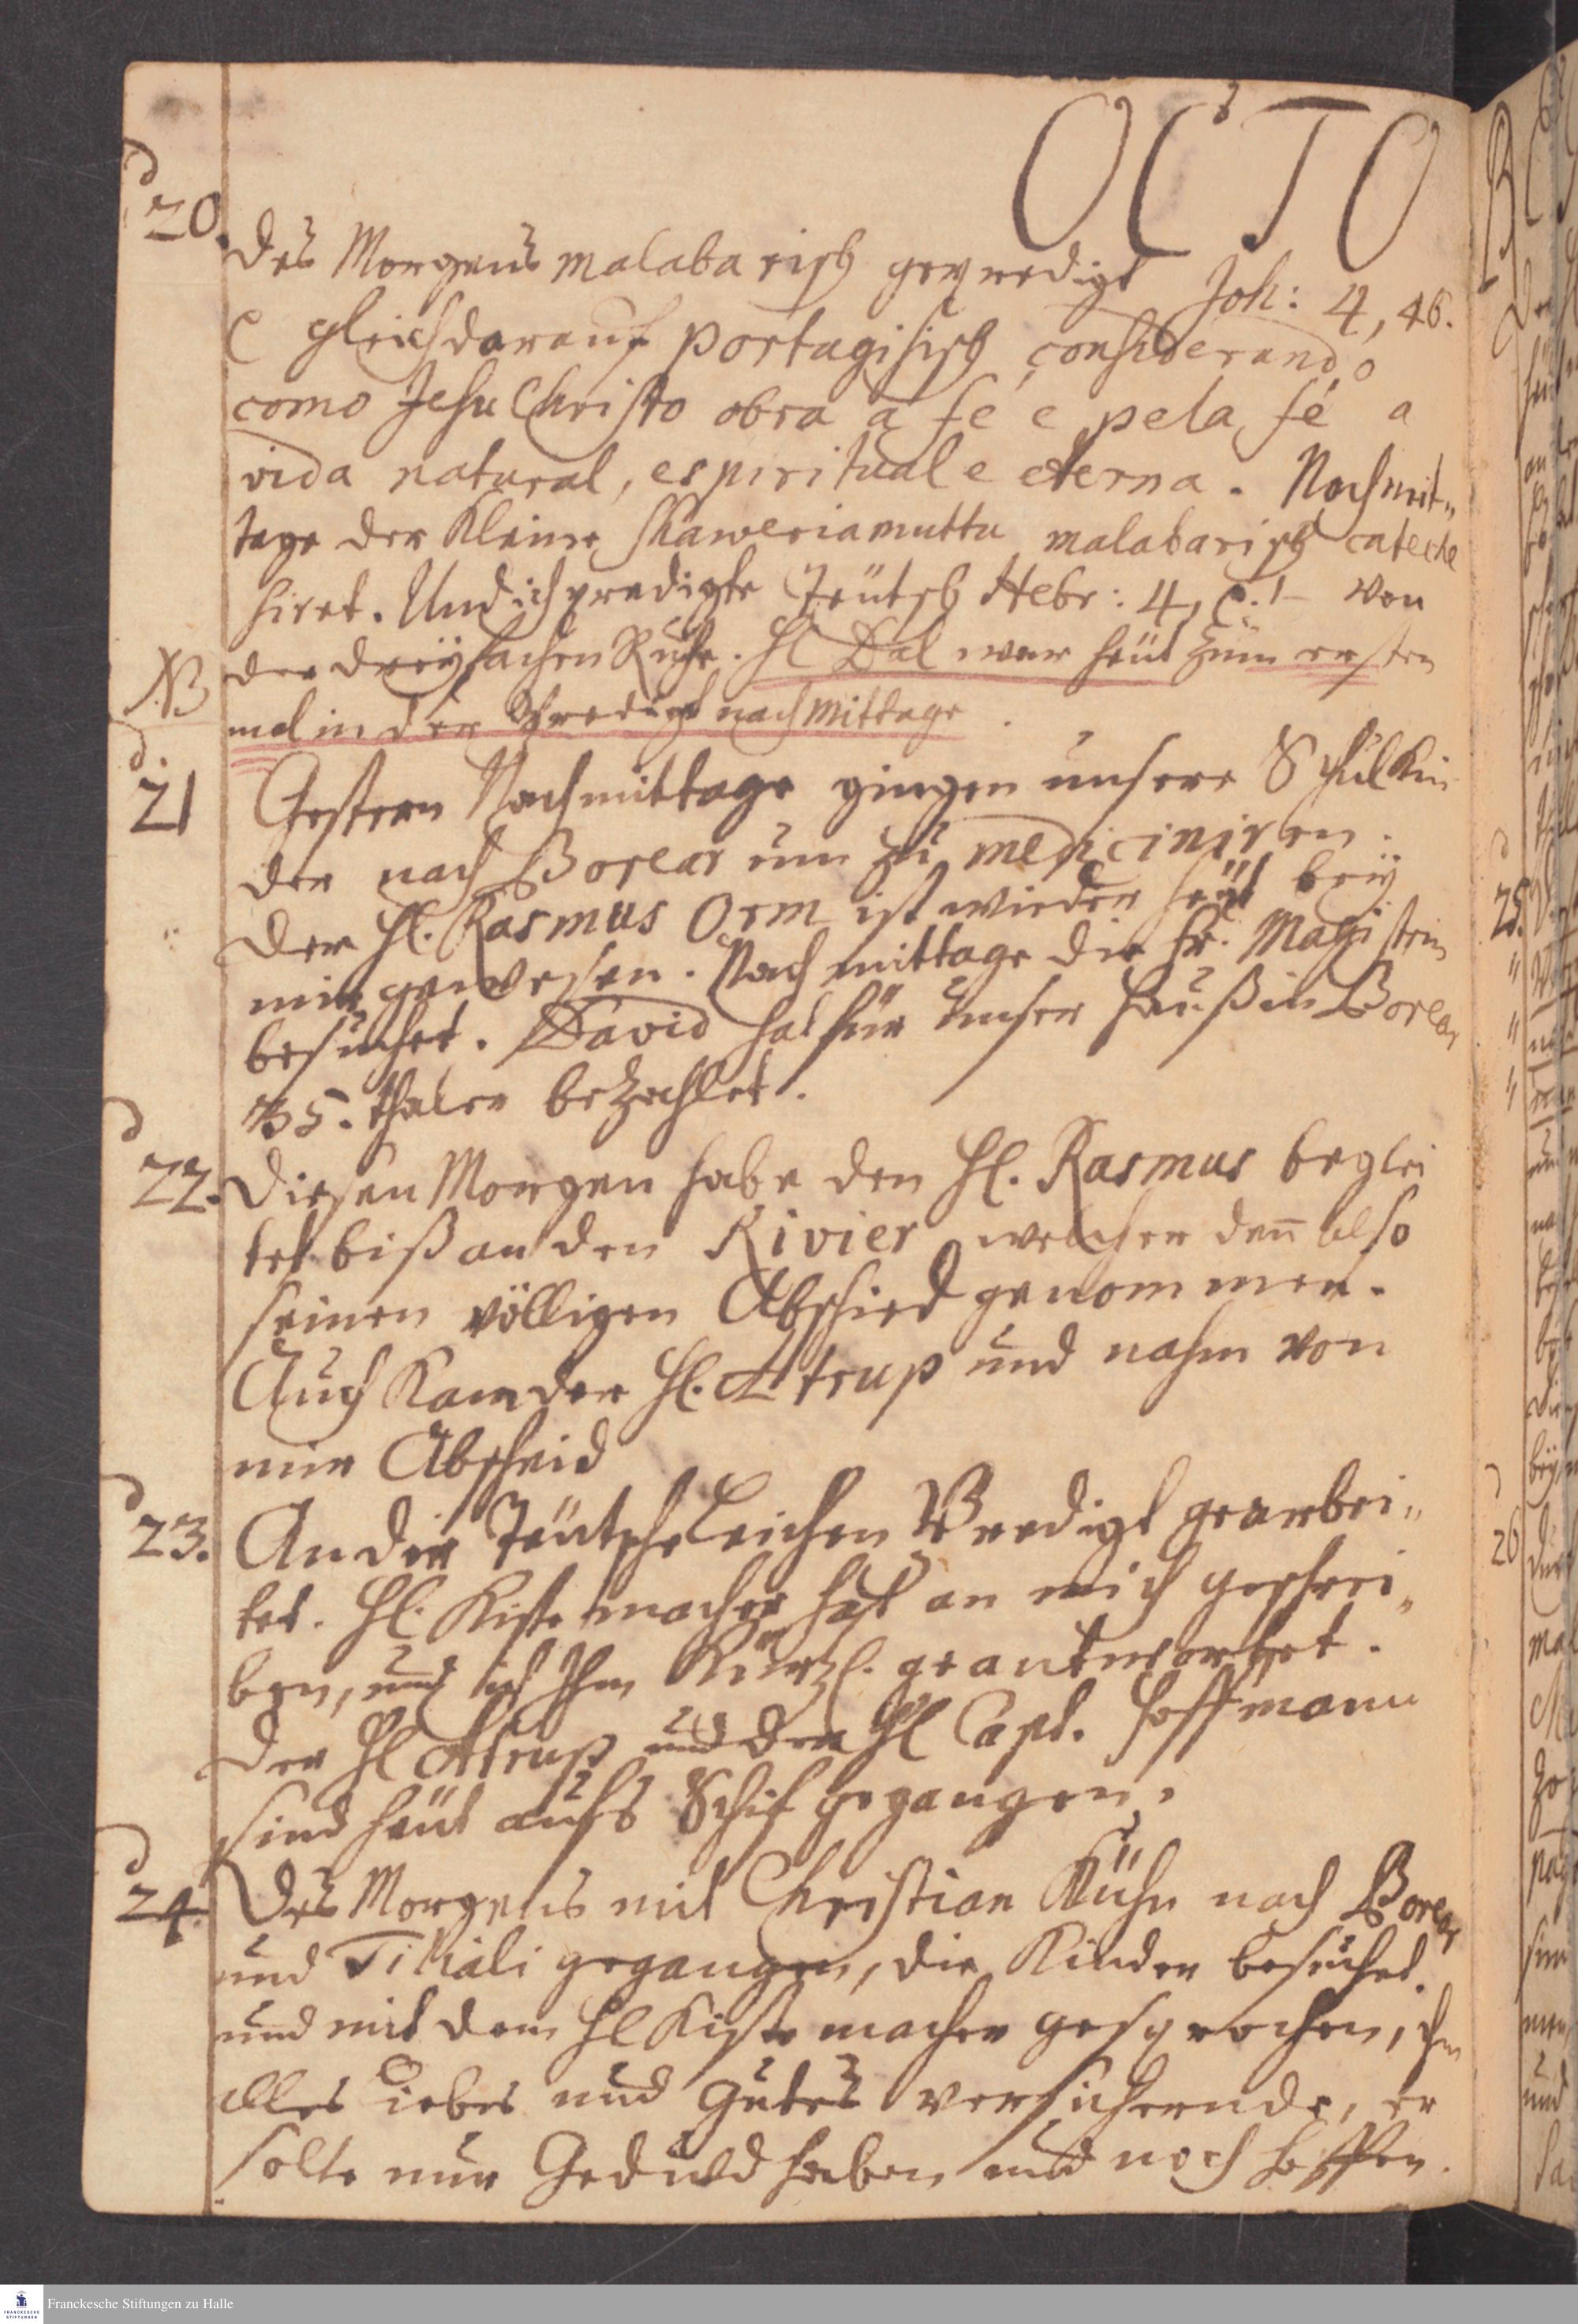 OCTO
d
20. des Morgens malabarisch geprediget Joh: 4, 46.
e gleich darauf portugisisch, considerando
como Jesu Christo obra a fé e pela fé a
vida natural, espiritual e eterna. Nachmit„
tage der Kleine Schaweriamuttu malabarisch cateche
siret. Und ich predigte Teütsch Hebr: 4, v. 1– von
NB der dreyfachen Ruhe. Hl Dal war heüt zum ersten
mal in der Predigt nach Mittage.
d.
21 Gestern Nachmittage gingen unsere Schulkin
der nachBorear um zu mediciniren.
Der Hl. Rasmus Orm ist wieder heüt bey
mir gewesen. Nach mittage die Fr. Magistrin
besuchet. David hat für unser Hauß in Borear
35. thaler bezahlet.
d
22. Diesen Morgen habe den Hl. Rasmus beglei
tet biß an den Rivier, welcher den also
seinen völligen Abschied genommen.
Auch kam der Hl. Attrup und nahm von
mir Abscheid
d
23. An der Teütsche Leichen Predigt gearbei„
tet. Hl. Kistemacher hat an mich geschrie„
ben, und ich Ihm kürzl. geantwortet.
Der Hl Attrup und der Hl Capt. Hoffmann
sind heüt aufs Schif gegangen.
d
24. Des Morgens mit Christian Kühn nach Borear
und Tikiali gegangen, die Kinder besuchet.
und mit dem Hl Kistemacher gesprochen, ihm
alles Liebes und Gutes versichernde, er
solte nur Geduld haben und noch hoffen.
25.
26
Franckesche Stiftungen zu Halle